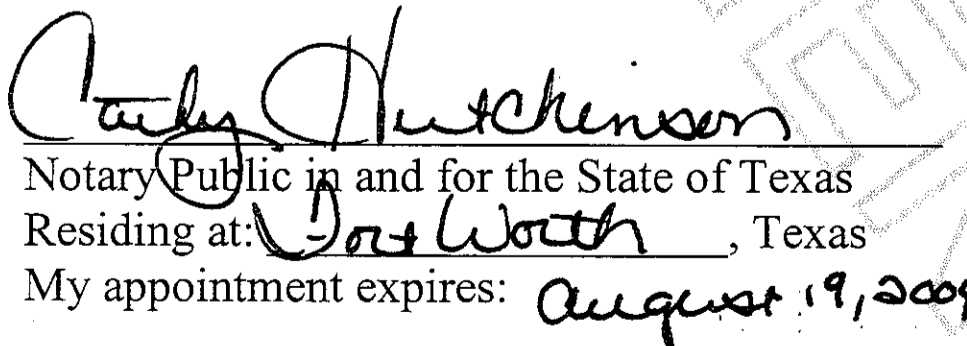 Hutchinson
Notary Public in and for the State of Texas
Residing at: Fort Worth, Texas
My appointment expires: August 19, 2009